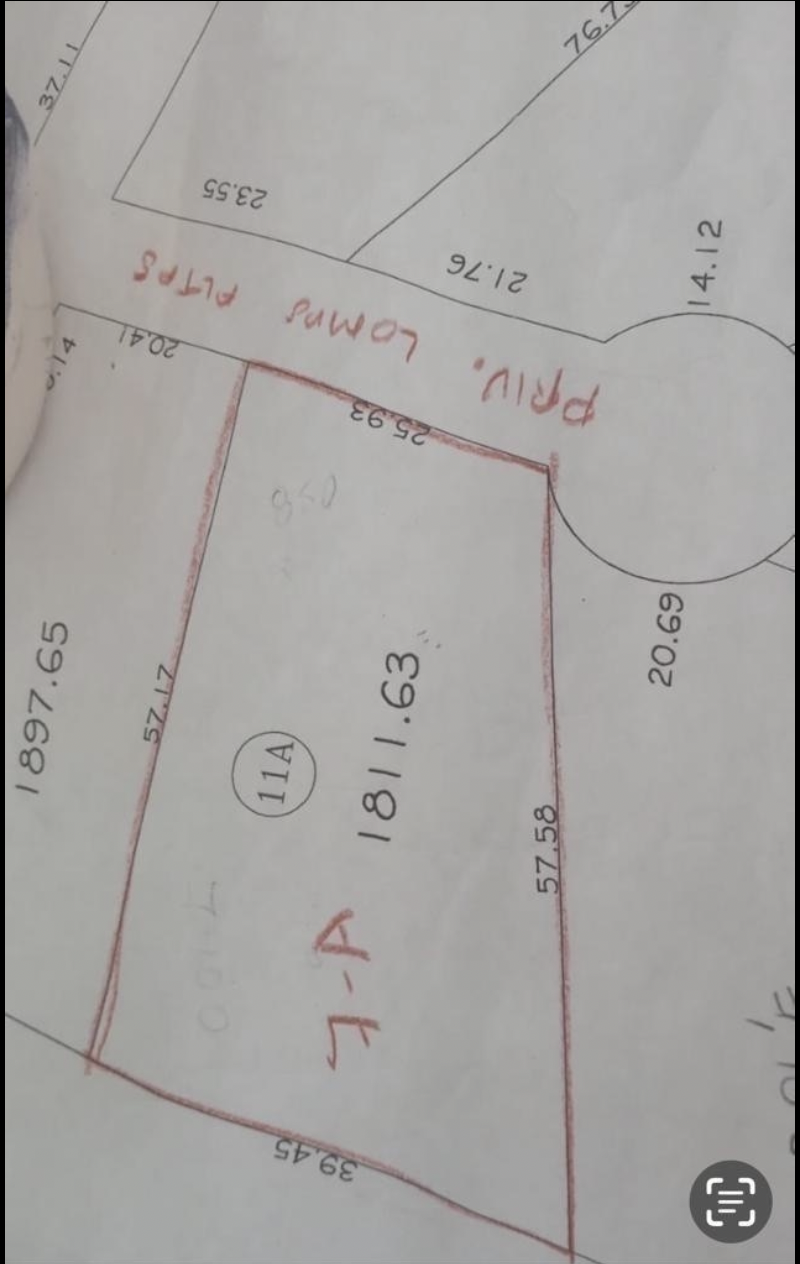 37.11
76.7
23.55
21.76
14.12
PRIV. LOMAS ALTAS
20.41
25.93
1897.65
57.17
11A
1811.63
20.69
57.58
7-A
39.45